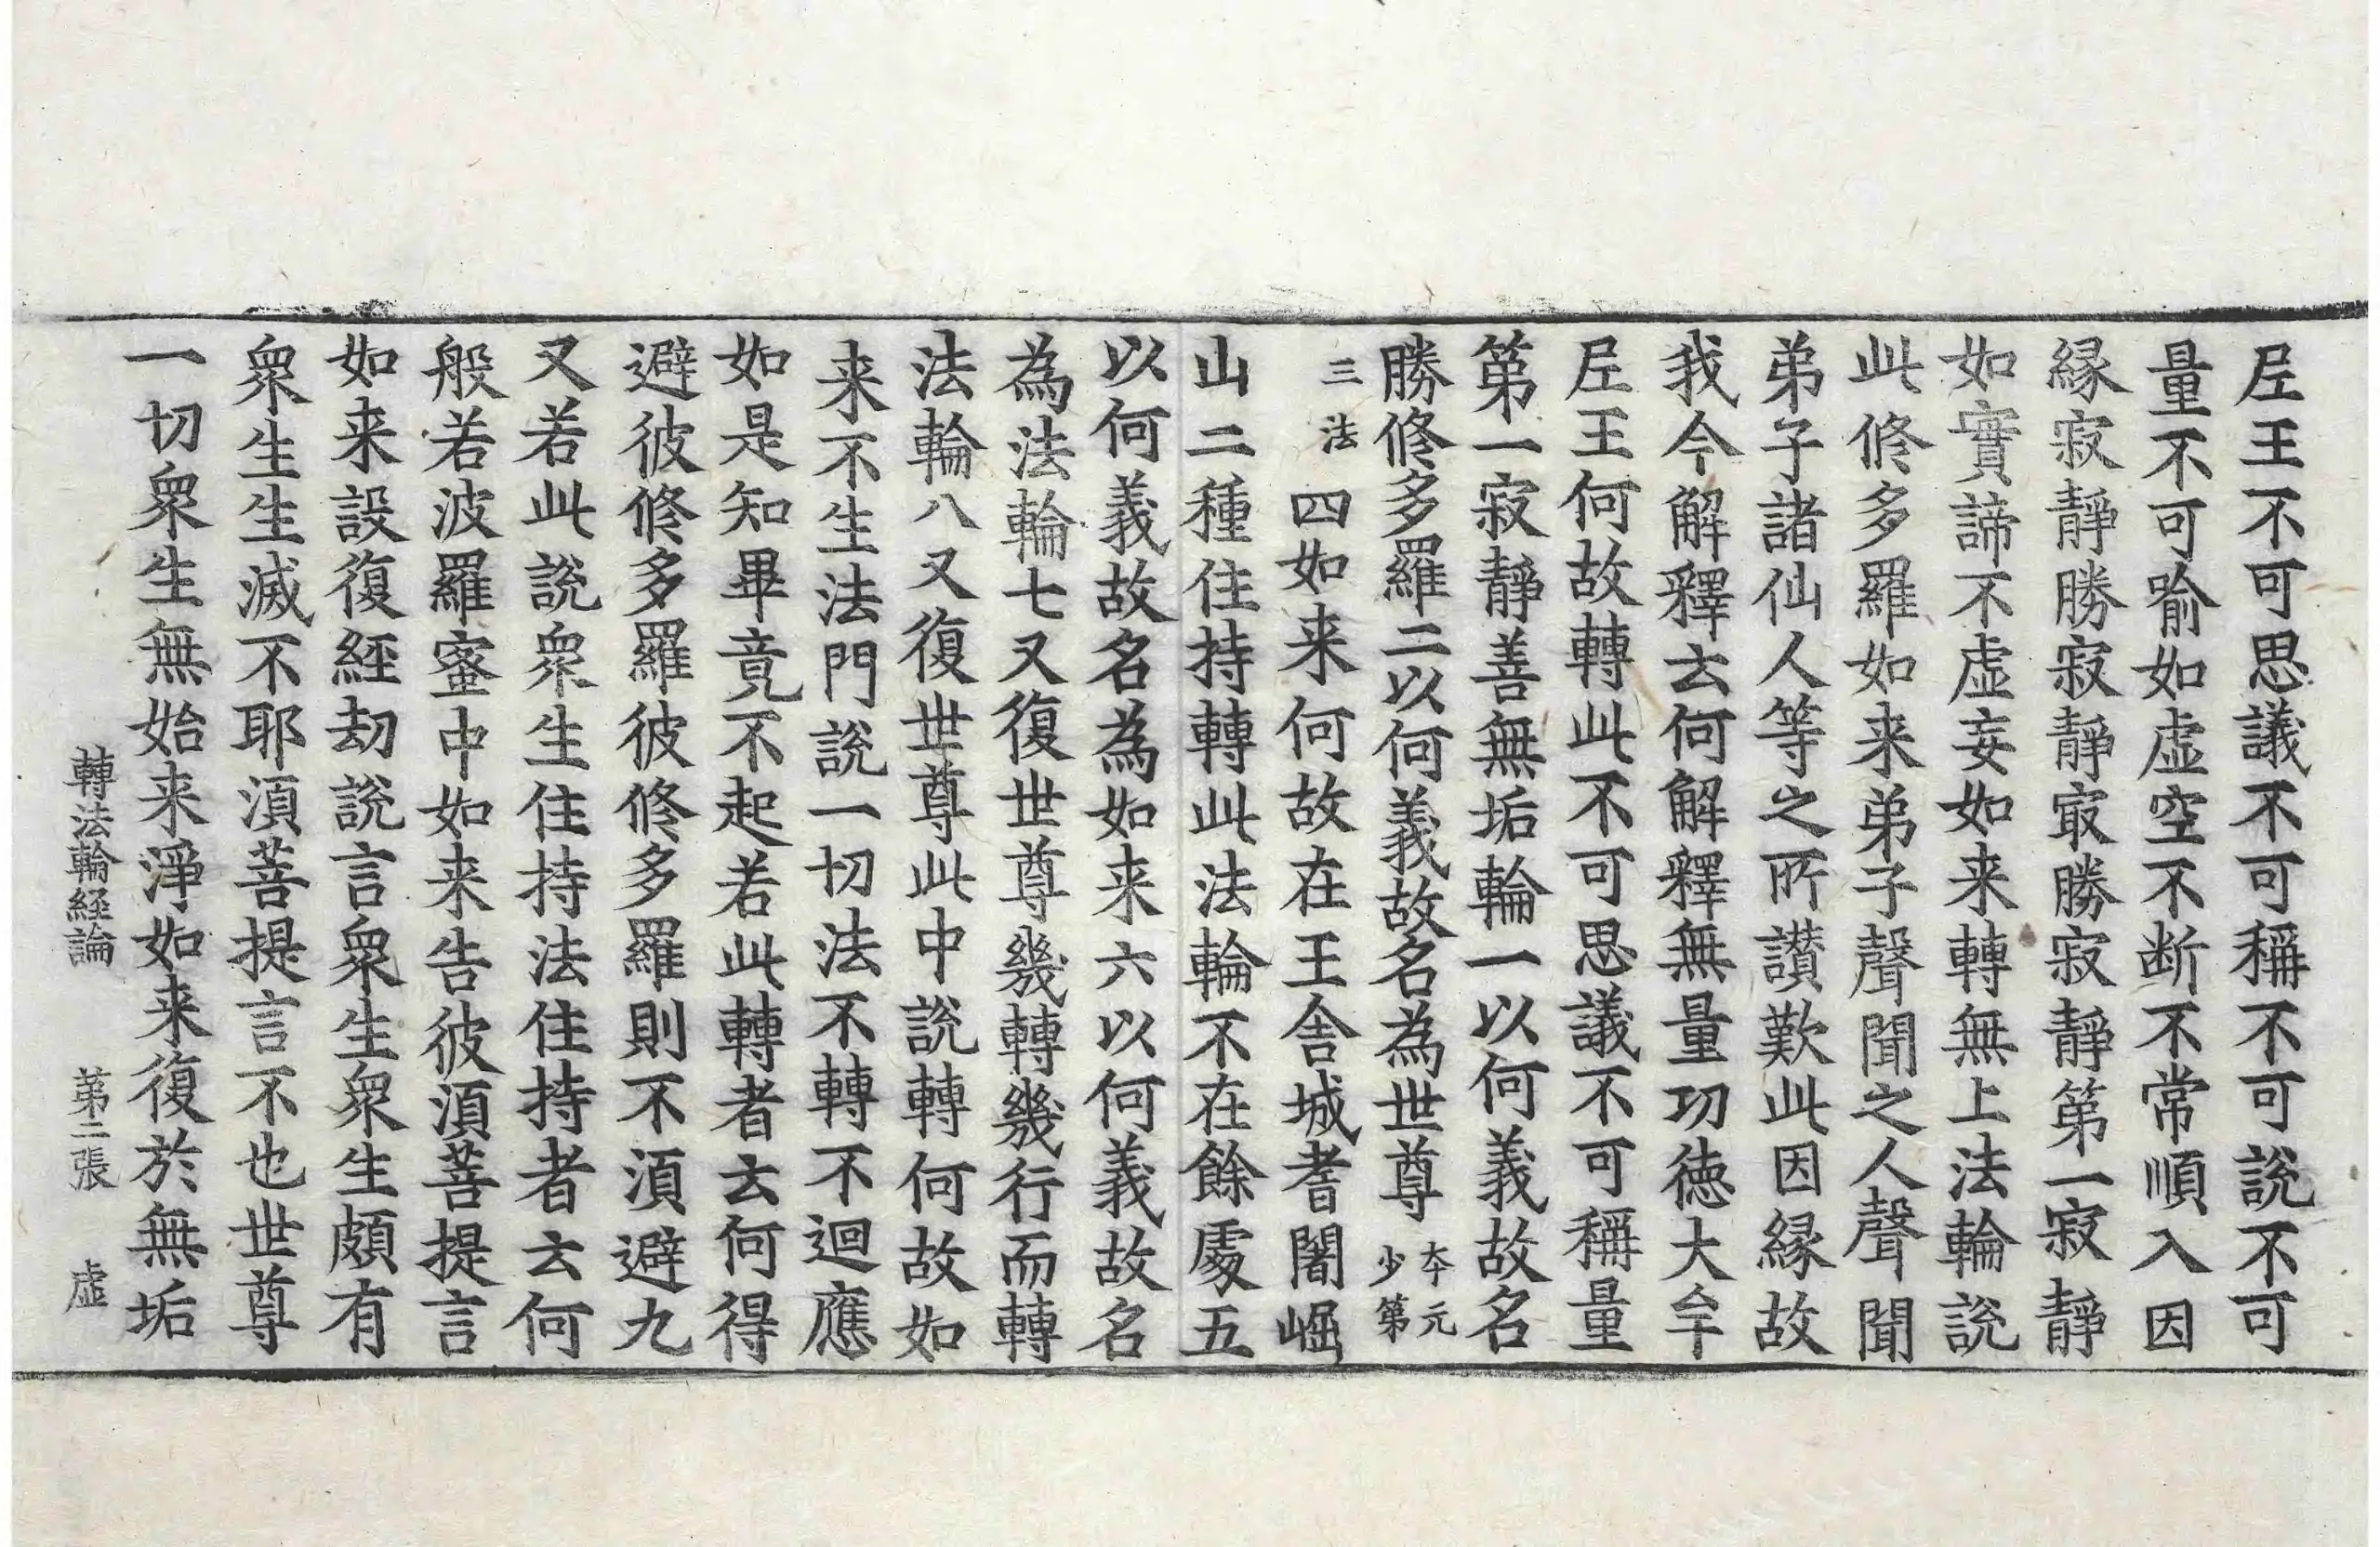 𡰱王不可思議不可稱不可說不可
量不可喻如虛空不断不常順入因
縁寂靜勝寂靜㝡勝寂靜第一寂靜
如實諦不虛妄如来轉無上法輪說
此修多羅如来弟子聲聞之人聲聞
弟子諸仙人等之所讃歎此因縁故
我今解釋云何解釋無量功徳大牟
𡰱王何故轉此不可思議不可稱量
第一寂靜善無垢輪一以何義故名
勝修多羅二以何義故名為世尊夲元少第
三法四如来何故在王舎城耆闍崛
山二種住持轉此法輪不在餘處五
以何義故名為如来六以何義故名
為法輪七又復世尊幾轉幾行而轉
法輪八又復世尊此中說轉何故如
来不生法門說一切法不轉不迴應
如是知畢竟不起若此轉者云何得
避彼修多羅彼修多羅則不須避九
又若此說衆生住持法住持者云何
般若波羅蜜中如来告彼須菩提言
如来設復經劫說言衆生衆生頗有
衆生生滅不耶須菩提言不也世尊
一切衆生無始来淨如来復於無垢
轉法輪経論 苐二張 虛